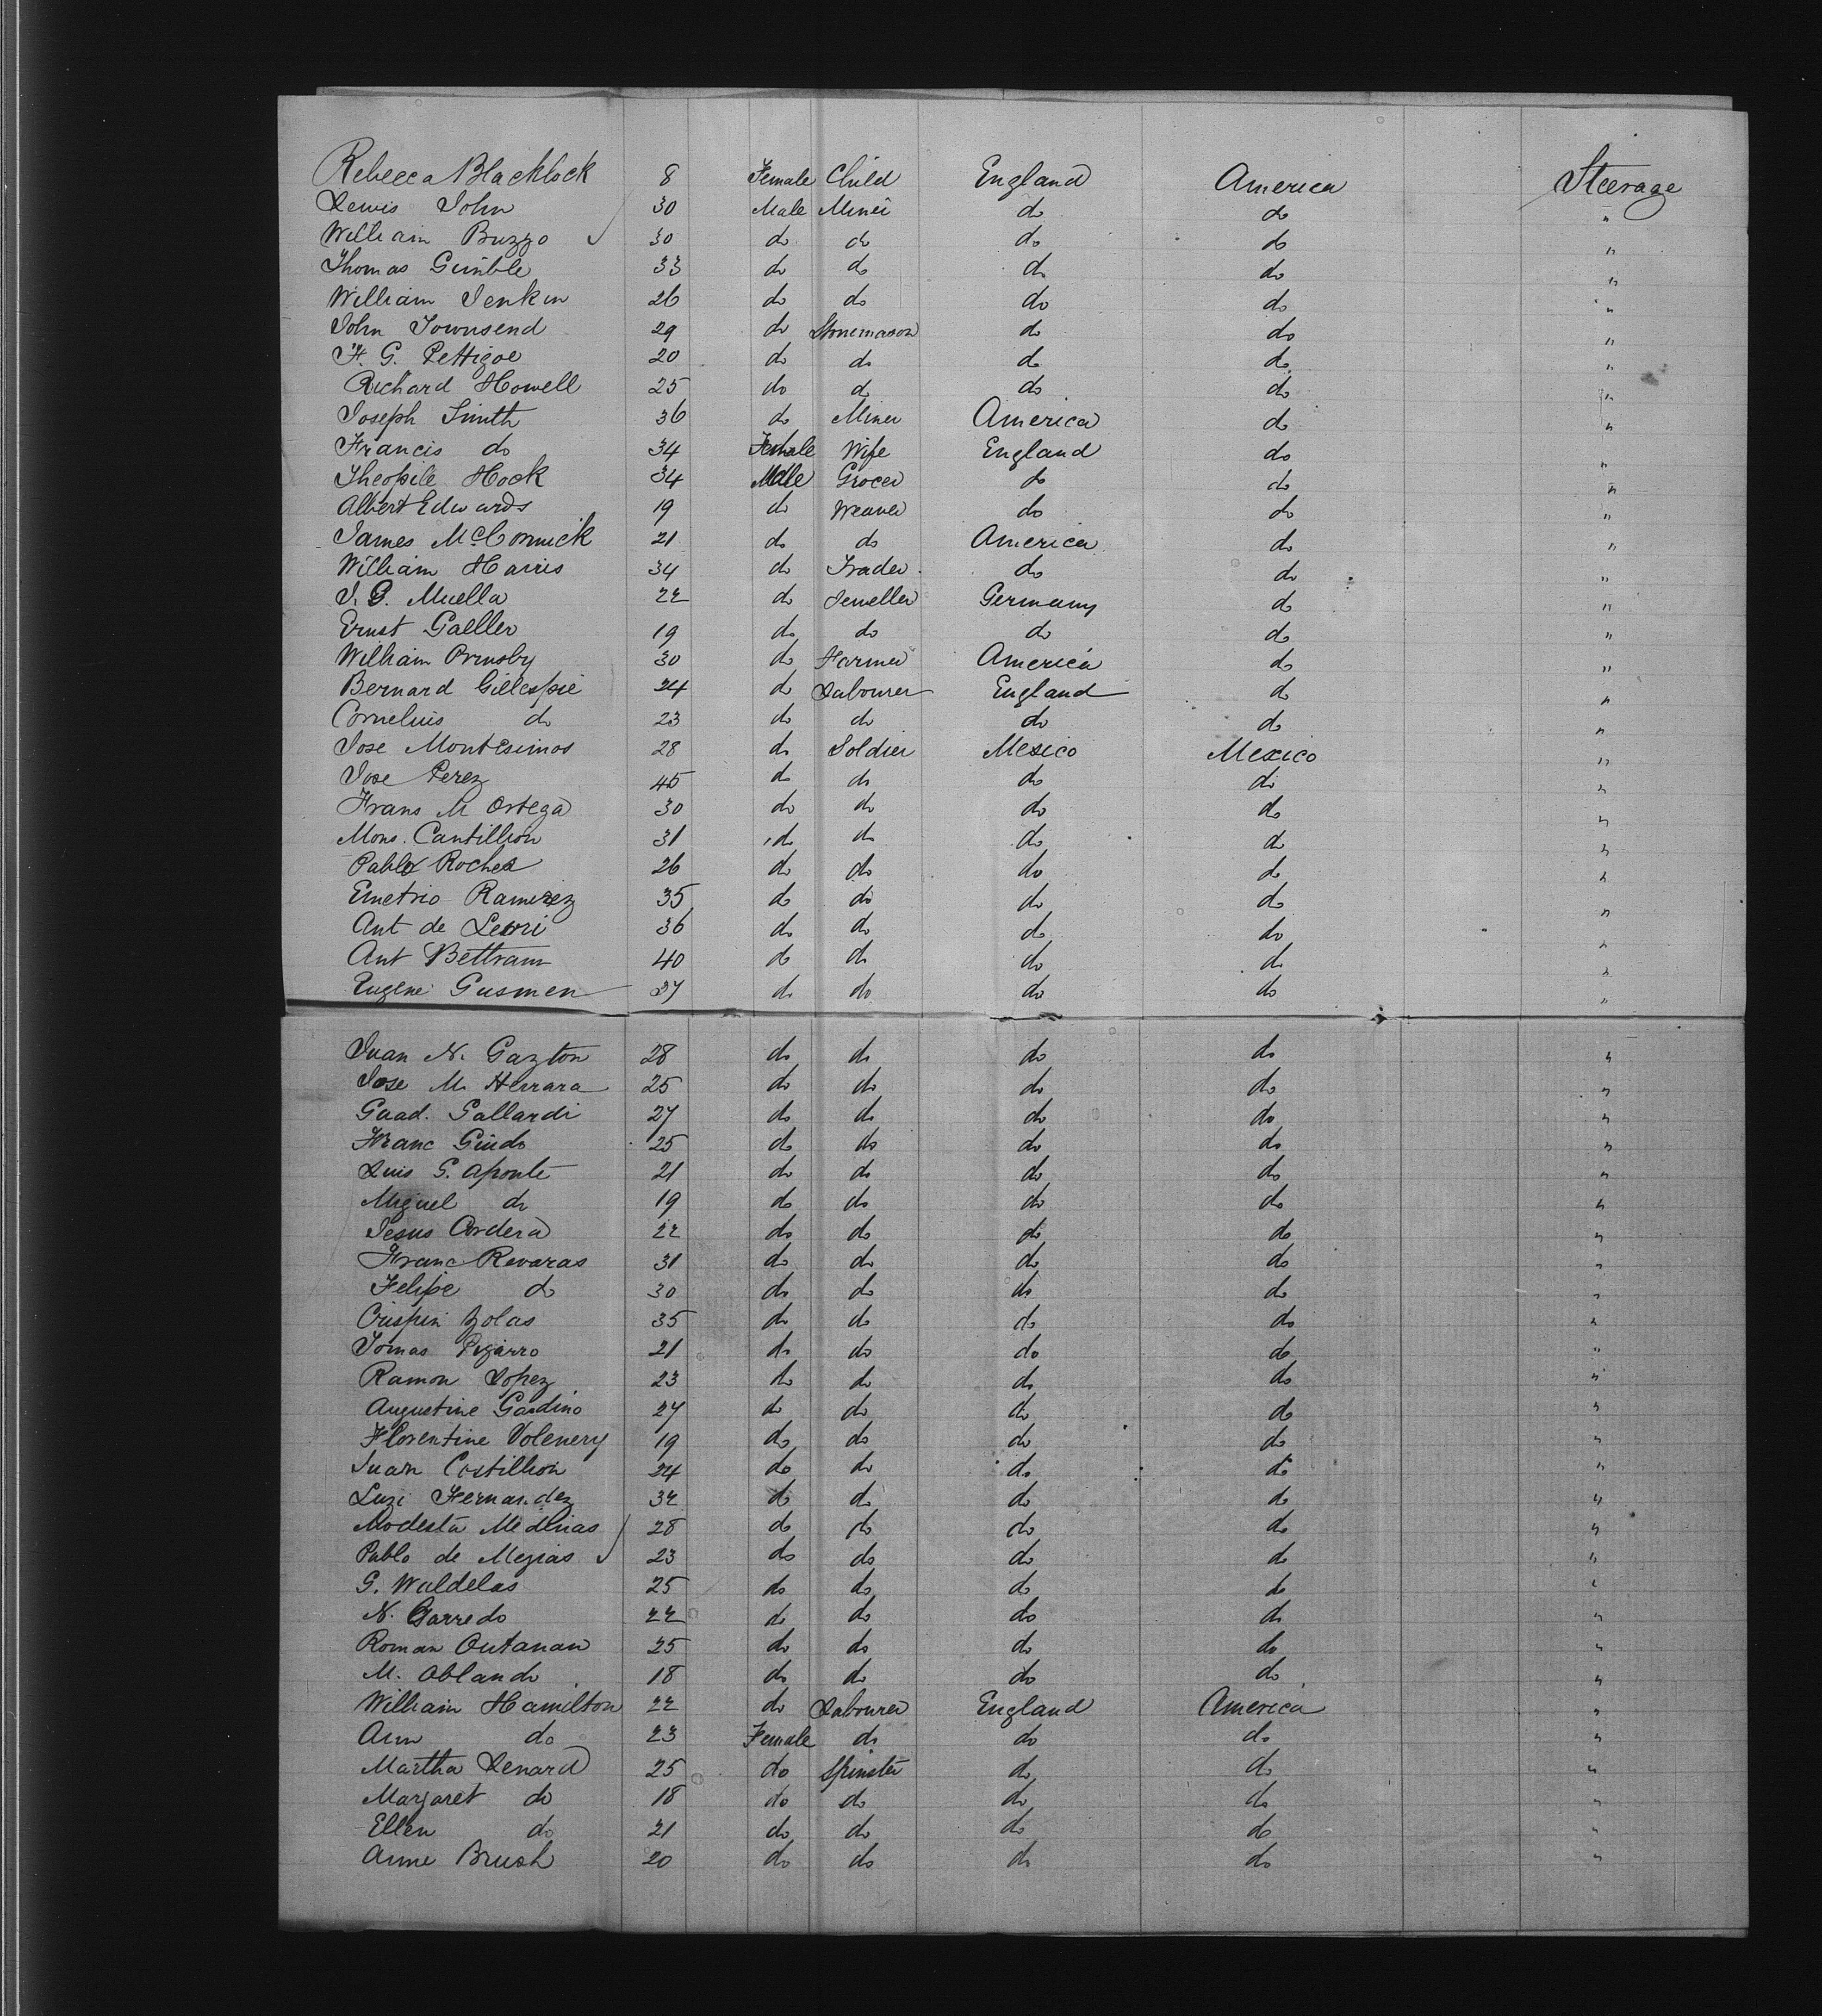 Rebecca Blacklock 8 Female Child England America Steerage
Lewis John 30 Male Miner do do "
William Buzzo 30 do do do do "
Thomas Gimble 33 do do do do "
William Jenkin 26 do do do do "
John Townsend 29 do Stonemason do do "
F. G. Pettigoe 20 do do do do "
Richard Howell 25 do do do do "
Joseph Smith 36 do Miner America do "
Francis do 34 Female Wife England do "
Theopile Hock 34 Male Grocer do do "
Albert Edwards 19 do Weaver do do "
James McCormick 21 do do America do "
William Harris 34 do Trader do do "
J. G. Muella 22 do Jeweller Germany do "
Ernst Gaeller 19 do do do do "
William Ormsby 30 do Farmer America do "
Bernard Gillespie 24 do Labourer England do "
Cornelius do 23 do do do do "
Jose Montesimos 28 do Soldier Mexico Mexico "
Jose Perez 45 do do do do "
Frans M Ortega 30 do do do do "
Mons. Cantillion 31 do do do do "
Pablo Rocher 26 do do do do "
Emetrio Ramirez 35 do do do do "
Ant de 36 do do do do "
Ant Bettram 40 do do do do "
Eugene Gusmen 37 do do do do "
Juan N. Gazton 28 do do do do "
Jose M Herrara 25 do do do do "
Guad. Gallardi 27 do do do do "
Franc Guido 25 do do do do "
Luis G. Aponte 21 do do do do "
Miguel do 19 do do do do "
Jesus Cordera 22 do do do do "
Franc Revaras 31 do do do do "
Felipe do 30 do do do do "
Crispin Zolas 35 do do do do "
Tomas Pizarro 21 do do do do "
Ramon Lopez 23 do do do do "
Augustine Gardino 27 do do do do "
Florentine Volenery 19 do do do do "
Juan Costillion 24 do do do do "
Luzi Fernandez 32 do do do do "
Modesta Medinas 28 do do do do "
Pablo de Mezias 23 do do do do "
G. Waldelas 25 do do do do "
N. Garredo 22 do do do do "
Roman Outanan 25 do do do do "
M. Oblando 18 do do do do "
William Hamilton 22 do Labourer England America "
Ann do 23 Female do do do "
Martha Lenard 25 do Spinster do do "
Margaret do 18 do do do do "
Ellen do 21 do do do do "
Anne Brush 20 do do do do "